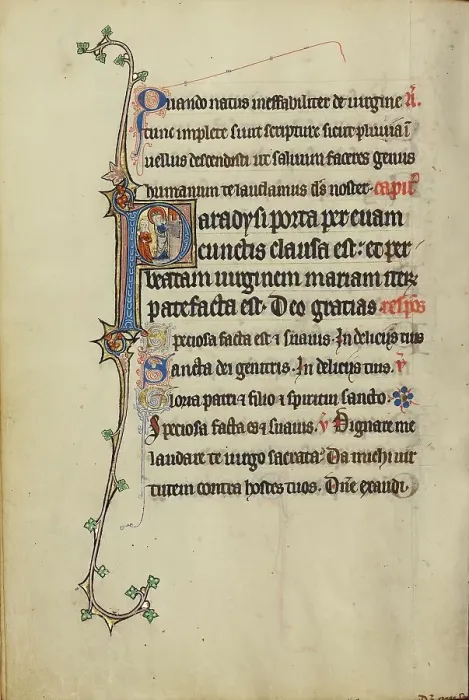 Quando natus ineffabiliter de uirgine A.
tunc implete sunt scripture sicut pluuia ī
uellus descendisti ut saluum faceres genus
humanum te laudamus ds noster. capitl
Paradysi porta per euam
cunctis clausa est: et per
beatam uirginem mariam iter
patefacta est. Deo gratias. respōs
Speciosa facta es ⁊ suauis. In deliciis tuis
Sancta dei genitrix. In deliciis tuis. v
Gloria patri ⁊ filio ⁊ spiritui sancto.
Speciosa facta es ⁊ suauis. v Dignare me
laudare te uirgo sacrata. Da michi uir
tutem contra hostes tuos. Dne exaudi.